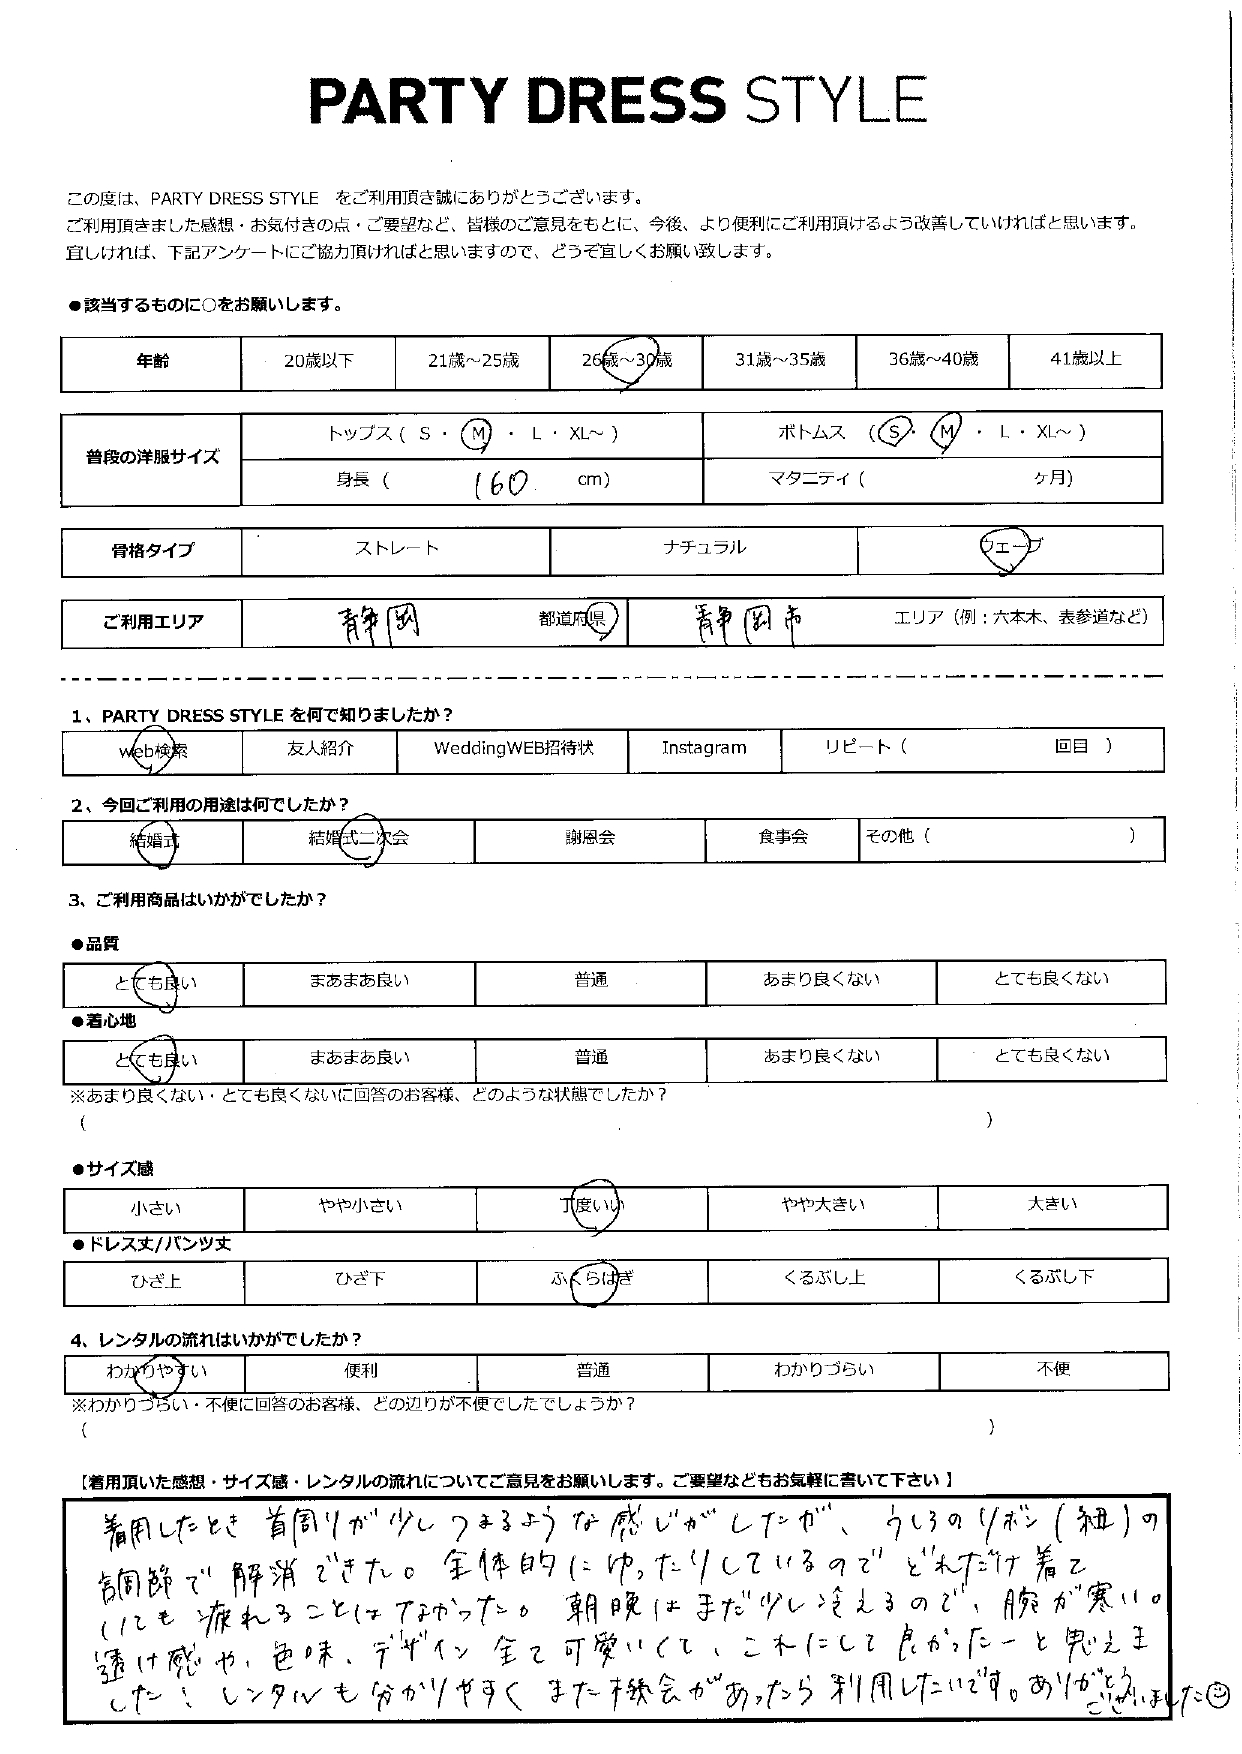 PARTY DRESS STYLE
この度は、PARTY DRESS STYLE をご利用頂き誠にありがとうございます。
ご利用頂きました感想・お気付きの点・ご要望など、皆様のご意見をもとに、今後、より便利にご利用頂けるよう改善していければと思います。
宜しければ、下記アンケートにご協力頂ければと思いますので、どうぞ宜しくお願い致します。
●該当するものに○をお願いします。
年齢 20歳以下 21歳～25歳 26歳～30歳 31歳～35歳 36歳～40歳 41歳以上
普段の洋服サイズ
トップス ( S ・ M ・ L ・ XL～ ) ボトムス ( S ・ M ・ L ・ XL～ )
身長 ( 160 cm) マタニティ ( ヶ月)
骨格タイプ ストレート ナチュラル ウェーブ
ご利用エリア 静岡 都道府県 静岡市 エリア（例：六本木、表参道など）
1、PARTY DRESS STYLE を何で知りましたか？
web検索 友人紹介 WeddingWEB招待状 Instagram リピート ( 回目 )
2、今回ご利用の用途は何でしたか？
結婚式 結婚式二次会 謝恩会 食事会 その他 ( )
3、ご利用商品はいかがでしたか？
●品質
とても良い まあまあ良い 普通 あまり良くない とても良くない
●着心地
とても良い まあまあ良い 普通 あまり良くない とても良くない
※あまり良くない・とても良くないに回答のお客様、どのような状態でしたか？
( )
●サイズ感
小さい やや小さい 丁度いい やや大きい 大きい
●ドレス丈/パンツ丈
ひざ上 ひざ下 ふくらはぎ くるぶし上 くるぶし下
4、レンタルの流れはいかがでしたか？
わかりやすい 便利 普通 わかりづらい 不便
※わかりづらい・不便に回答のお客様、どの辺りが不便でしたでしょうか？
( )
【着用頂いた感想・サイズ感・レンタルの流れについてご意見をお願いします。ご要望などもお気軽に書いて下さい 】
着用したとき 首周りが少しつまるような感じがしたが、うしろのリボン(紐)の
調節で解消できた。全体的にゆったりしているので どれだけ着て
いても疲れることはなかった。朝晩はまだ少し冷えるので、腕が寒い。
透け感や、色味、デザイン全て可愛いくて、これにして良かったーと思えま
した！レンタルも分かりやすく また機会があったら利用したいです。ありがとう
ございました☺